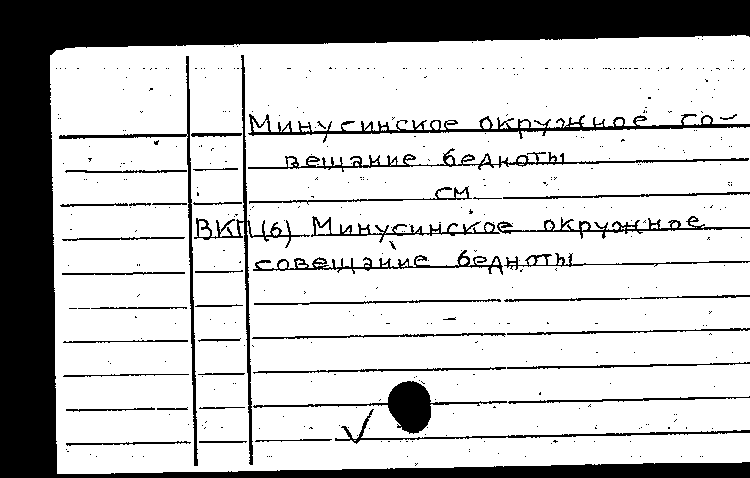 Минусинское окружное со-
вещание бедноты
см.
ВКП(б) Минусинское окружное
совещание бедноты